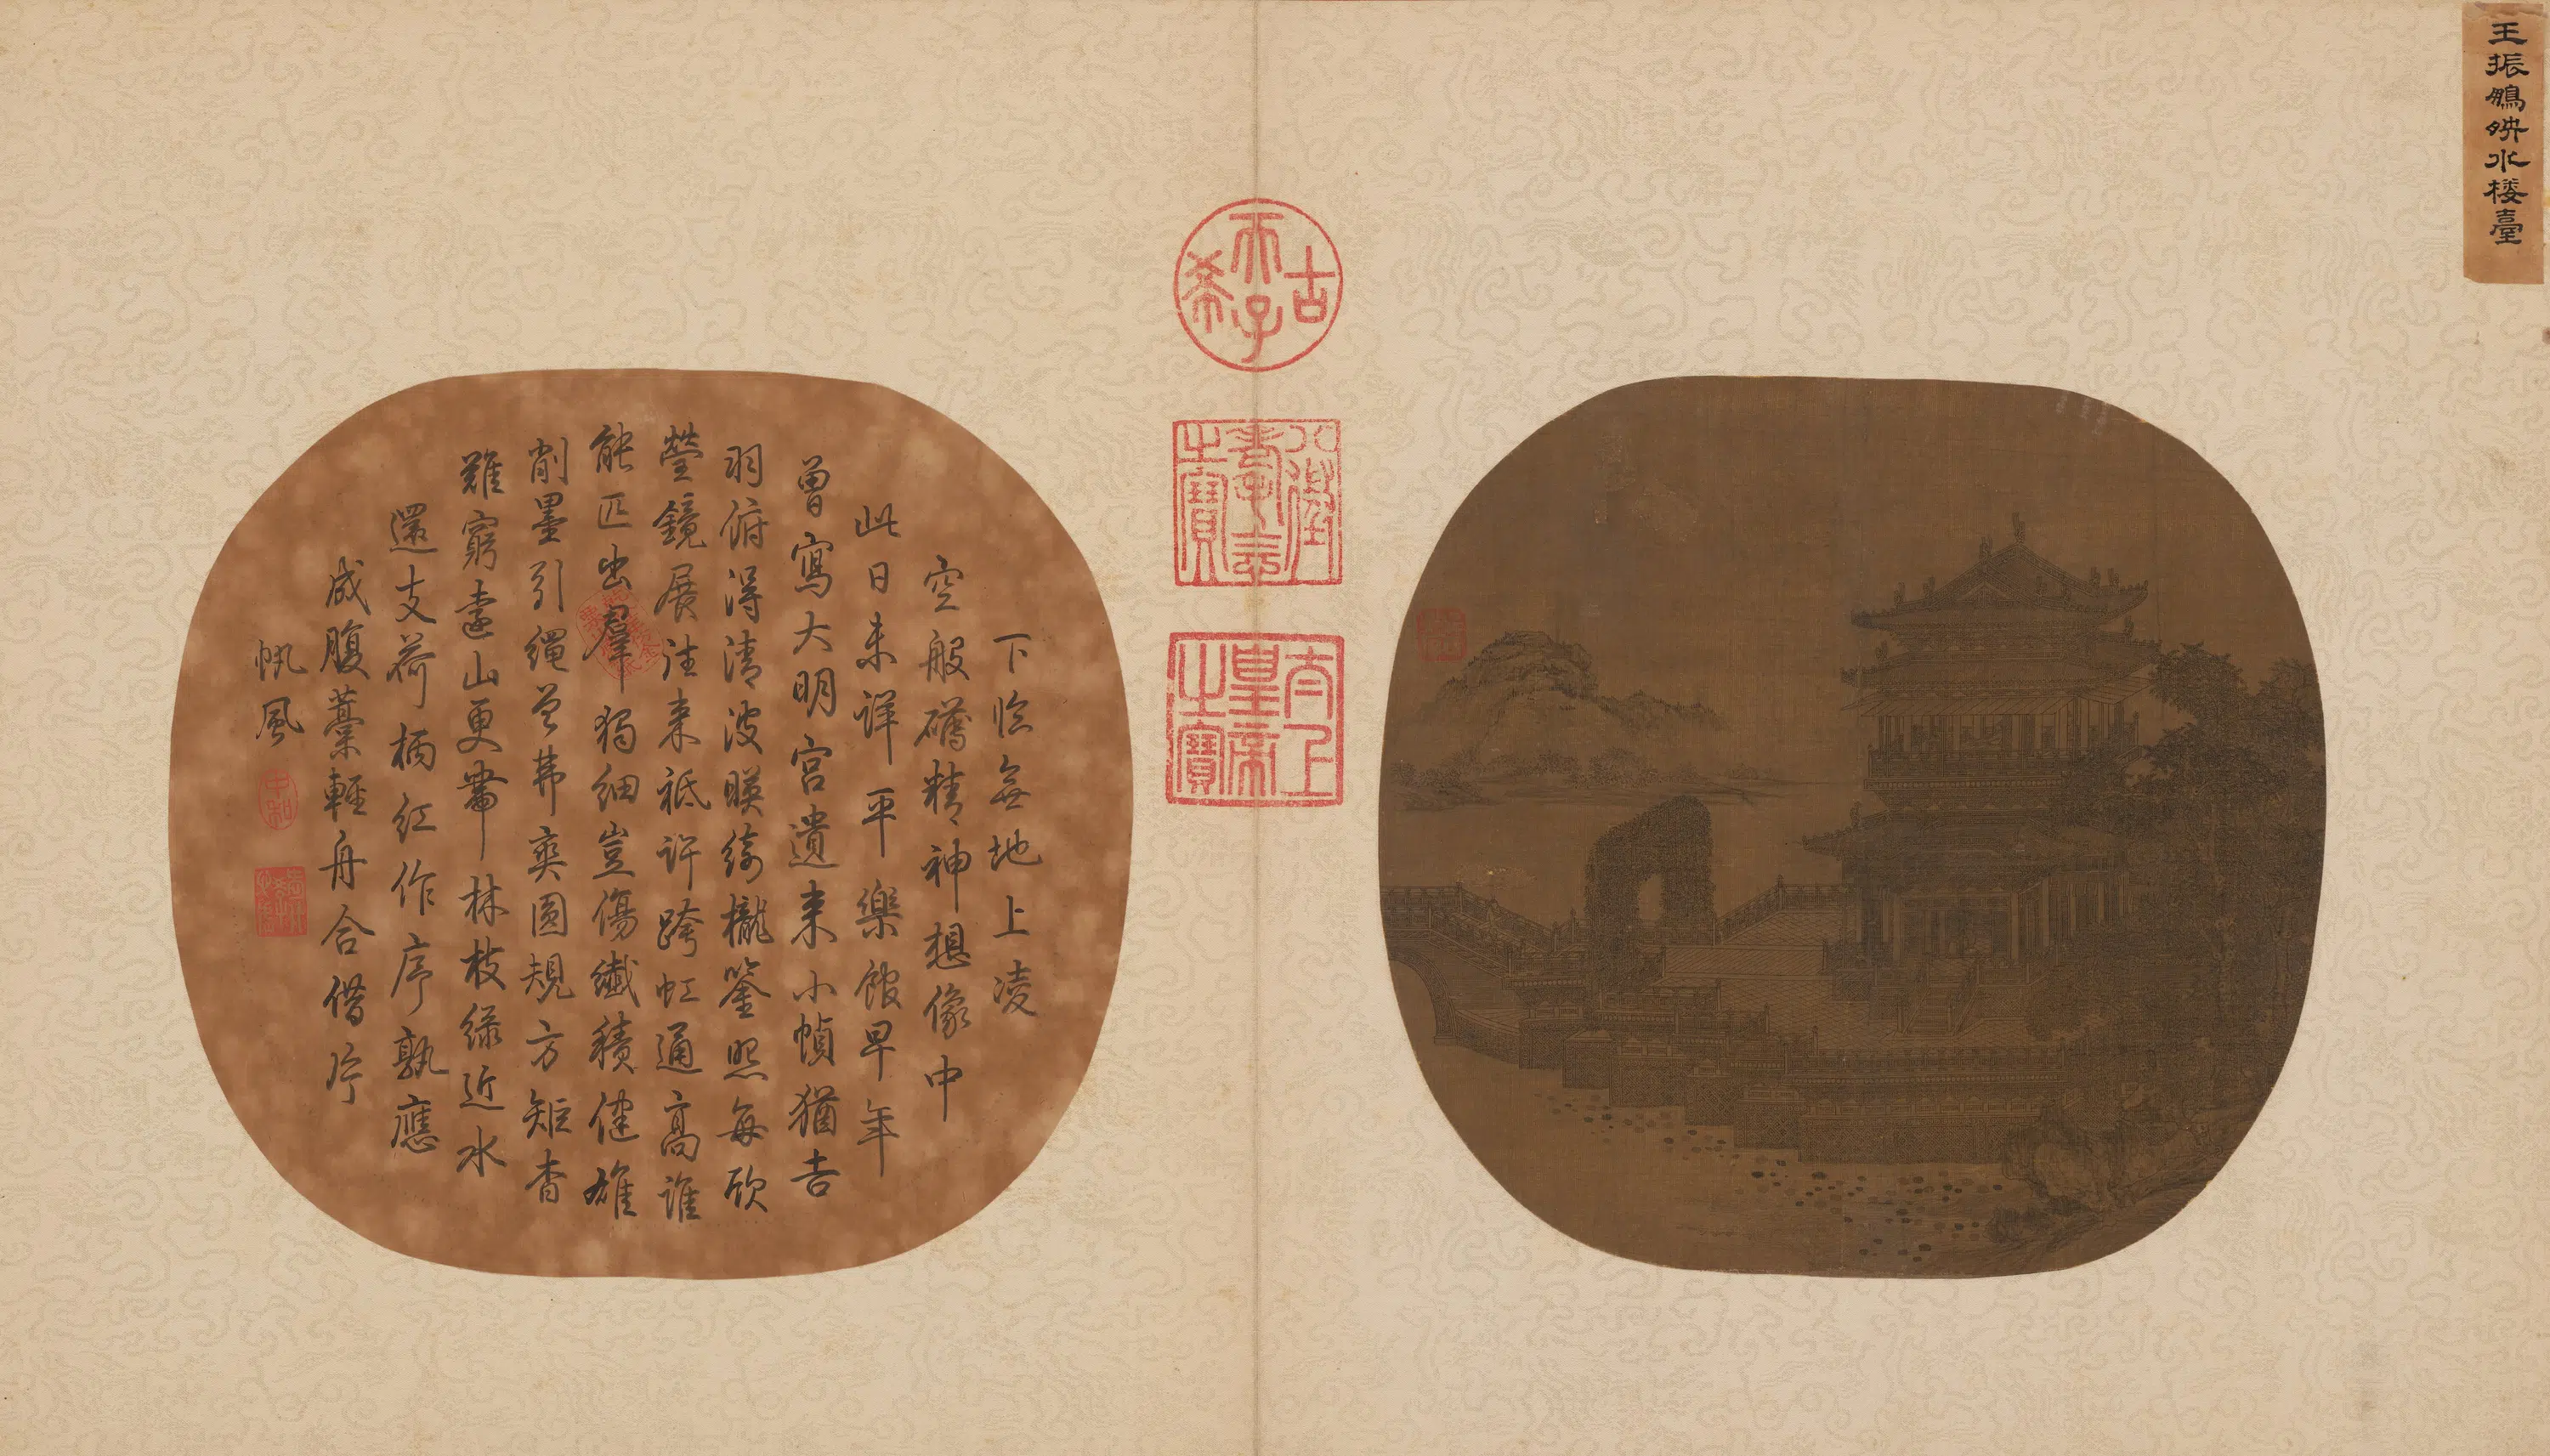 王振鵬映水楼臺
古希天子
八徵耄念之寶
太上皇帝之寶
下臨無地上凌
空般礴精神想像中
此日未詳平樂館早年
曾寫大明宮遺來小幀猶吉
羽俯淂清波暎綺櫳鋻照每欣
瑩鏡展往來祗許跨虹通高誰
能匹出羣獨細豈傷纖積健雄
削墨引繩曽茀爽圓規方矩杳
難窮遠山更帶林枝綠近水
還支荷柄紅作序孰應
成腹藁輕舟合借片
帆風
中和